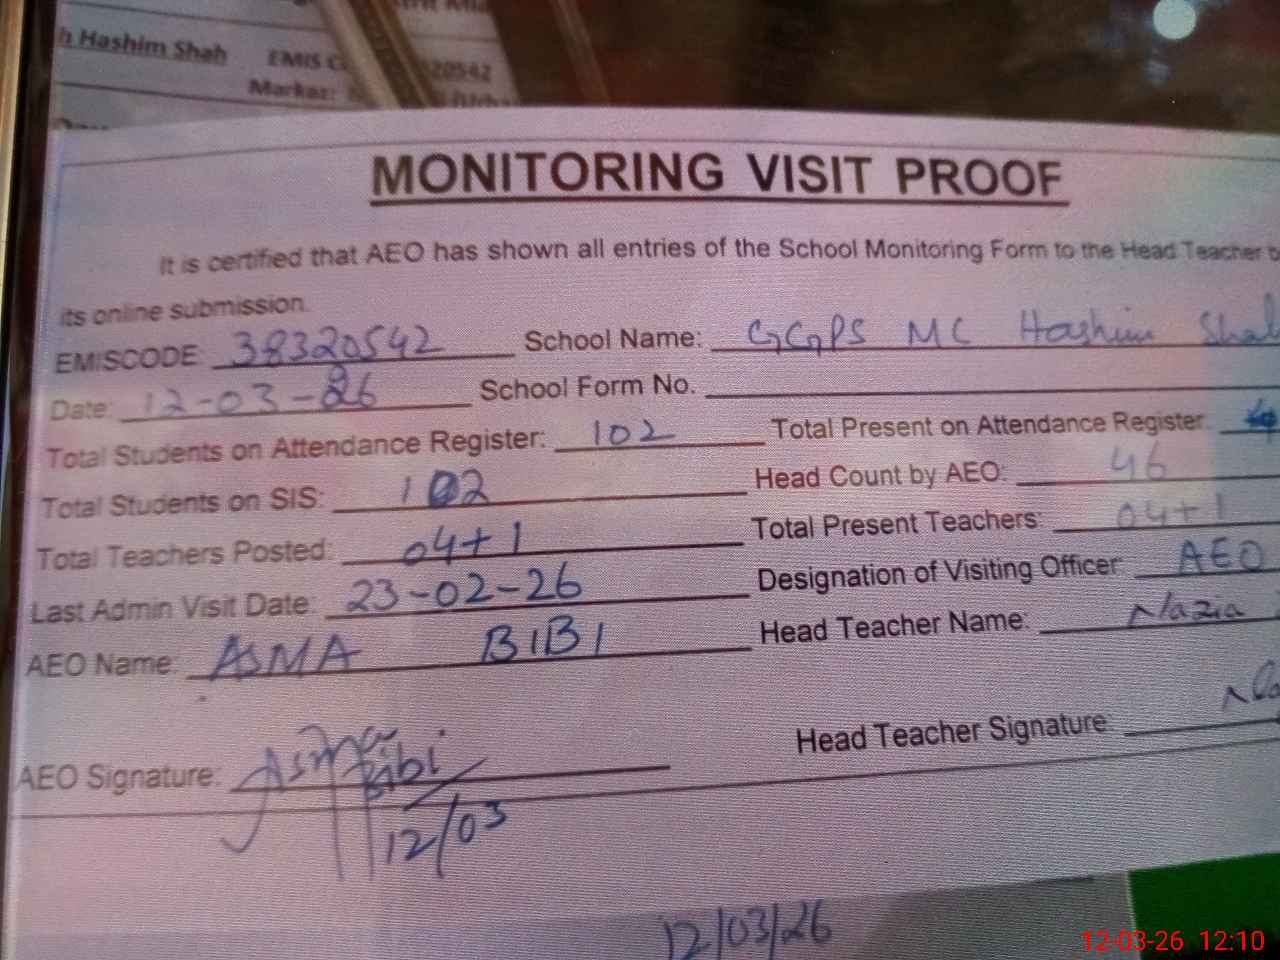 h Hashim Shah EMIS C 20542
Markaz:
MONITORING VISIT PROOF
It is certified that AEO has shown all entries of the School Monitoring Form to the Head Teacher
its online submission.
EMISCODE: 38320542 School Name: GGPS MC Hashim Shah
Date: 12-03-26 School Form No.
Total Students on Attendance Register: 102 Total Present on Attendance Register:
Total Students on SIS: 102 Head Count by AEO: 46
Total Teachers Posted: 04+1 Total Present Teachers: 04+1
Last Admin Visit Date: 23-02-26 Designation of Visiting Officer: AEO
AEO Name: ASMA BIBI Head Teacher Name: Nazia
AEO Signature: Asma Bibi Head Teacher Signature:
12/03
12/03/26
12-03-26 12:10